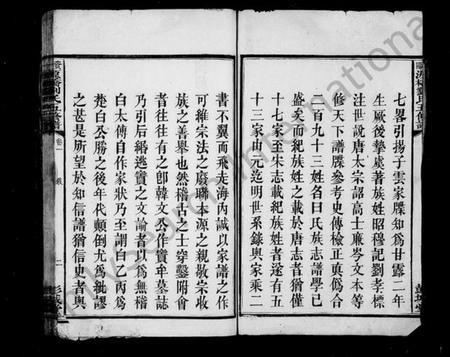 七畧引揚子雲家牒知為甘露二年
生厥後摯虞著族姓昭穆記劉孝標
注世說唐太宗詔高士廉岑文本等
修天下譜牒參考史傳檢正真僞合
二百九十三姓名曰氏族志譜學已
盛矣而紀族姓之載於唐志者猶僅
十七家至宋志載紀族姓者遂有五
十三家由元迄明世系錄與家乘二
書不翼而飛走海內誠以家譜之作
可維宗法之廢聯本源之親敬宗收
族之善舉也然稽古之士穿鑿附會
者往往有之卽韓文公作竇牟墓誌
乃引后緡逃竇之文論者以為無稽
白太傅自作家狀乃至謂白乙丙為
楚白公勝之後年代顛倒尤為紕謬
之甚是所望於知信譜猶信史者與
卷一
二